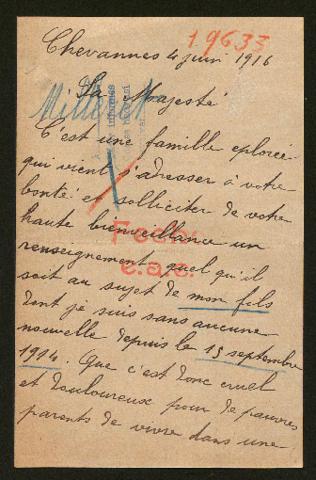 19633
Chevannes 4 juin 1916
Sa Majesté
C'est une famille eplorée
qui vient s'adresser à votre
bonté et solliciter de votre
haute bienveillance un
renseignement quel qu'il
soit au sujet de mon fils
dont je suis sans aucune
nouvelle depuis le 15 septembre
1914. Que c'est donc cruel
et douloureux pour de pauvres
parents de vivre dans une